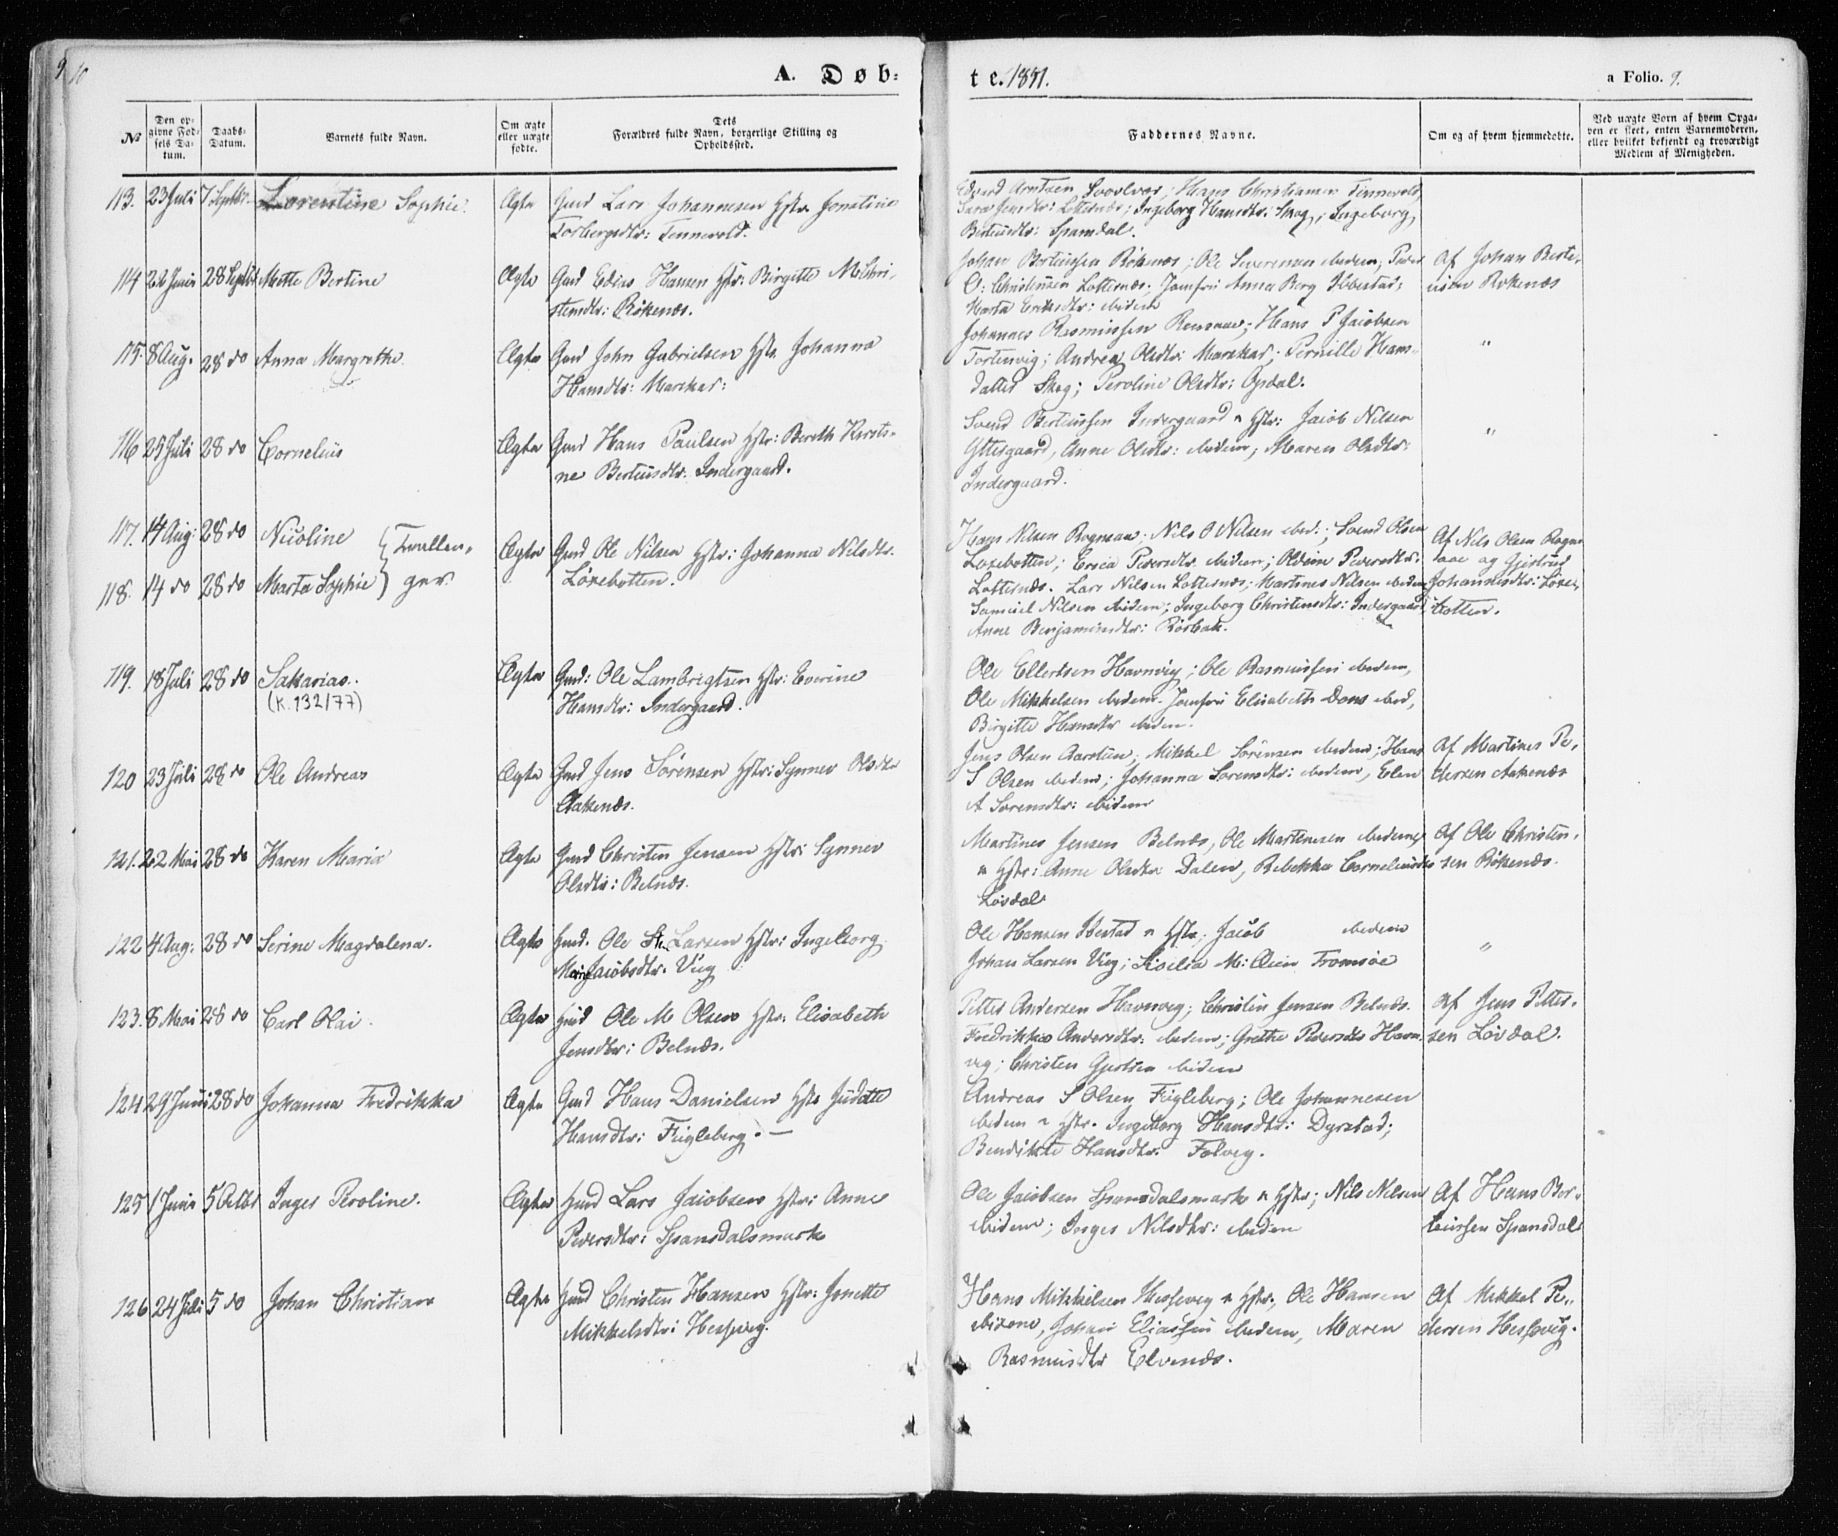 9 10
A. Døb-
te. 1851.
a Folio. 9.
№
Den op-
givne Fød-
sels Da-
tum.
Daabs-
Datum.
Barnets fulde Navn.
Om ægte
eller uægte
fødte.
Dets
Forældres fulde Navn, borgerlige Stilling og
Opholdssted.
Faddernes Navne.
Om og af hvem hjemmedøbte.
Ved uægte Børn af hvem Opga-
ven er skeet, enten Barnemoderen,
eller hvilket bekjendt og troværdigt
Medlem af Menigheden.
113. 23 Juli 7 Septbr. Lorentine Sophie. Ægte Gmd Lars Johannesen Hstr. Jonetine
Torbergsdtr: Tennevold.
Edvard Arntzen Svolvær; Hans Christiansen Tennevold,
Sara Jensdtr: Lotternæs; Ingeborg Hansdtr: Skog; Ingeborg
Berteusdtr: Spansdal.
114 22 Juni 28 Septbr Mette Bertine Ægte Gmd Edias Hansen Hstr: Birgitte M: Chri-
stensdtr: Røkenæs.
Johan Berteussen Røkenæs; Ole Severinsen ibidem; Peder
O: Christensen Lotternæs; Jomfru Anna Berg Ibbestad;
Marta Eriksdtr: ibidem
Af Johan Berte-
usen Røkenæs
115 8 Aug. 28 do Anna Margrethe. Ægte Gmd John Gabrielsen Hstr. Johanna
Hansdtr: Marekar:
Johannes Rasmussen Rensaae; Hans P Jacobsen
Tortenvig; Andrea Olsdtr: Marekar; Pernille Hans-
datter Skog; Peroline Olsdtr: Opdal.
"
116 25 Juli 28 do Cornelius Ægte Gmd Hans Paulsen Hstr: Bereth Kirsti-
ne Berteusdtr. Indergaard.
Svend Berteussen Indergaard & Hstr: Jacob Nilsen
Yttergaard, Anne Olsdtr: ibidem, Maren Olsdtr:
Indergaard.
"
117. 14 Aug: 28 do Nicoline } Tvillen-
118. 14 do 28 do Marta Sophie } ger.
Ægte Gmd Ole Nilsen Hstr: Johanna Nilsdtr.
Løxebotten.
Hans Nilsen Rogmaa; Nils O Nilsen ibid.; Svend Olsen
Løxebotten; Erica Pedersdtr ibidem; Oldine Pedersdtr:
Lotternæs. Lars Nilsen Lotternæs; Martines Nilsen ibidem
Samuel Nilsen ibidem; Ingeborg Christensdtr: Indergaard
Anne Benjaminsdtr: Rørbak.
Af Nils Olsen
og Gjertrud
Johannesdtr: Løxe-
botten.
119. 18 Juli 28 do Sakarias.
(K. 132/77)
Ægte Gmd: Ole Lambrigtsen Hstr: Everine
Hansdtr: Indergaard.
Ole Ellertsen Havnvig; Ole Rasmussen ibidem,
Ole Mikkelsen ibidem. Jomfru Elisabeth Dons ibid,
Birgitte Hansdtr ibidem.
120 23 Juli 28 do Ole Andreas Ægte Gmd Jens Sørensen Hstr: Synnev Olsdtr
Aakenæs.
Jens Olsen Aarsteen; Mikkel Sørensen ibidem; Hans
S Olsen ibidem; Johanna Sørensdtr: ibidem, Elen
A Sørensdtr: ibidem
Af Martines Pe-
dersen Aakenæs
121. 22 Mai 28 do Karen Maria Ægte Gmd Christen Jensen Hstr: Synnev
Olsdtr: Belnæs.
Martines Jensen Belnæs, Ole Martinesen ibidem
& Hstr: Anne Olsdtr Dalen, Rebekka Corneliusdtr
Løvdal
Af Ole Christen-
sen Røkenæs.
122 4 Aug: 28 do Serine Magdalena. Ægte Gmd. Ole St. Larsen Hstr: Ingeborg
Marie Jacobsdtr. Viig
Ole Hansen Ibestad & Hstr; Jacob ibidem
Johan Larsen Viig; Sisilia M: Tromsøe
"
123. 8 Mai 28 do Carl Olai. Ægte Gmd Ole M Olsen Hstr: Elisabeth
Jensdtr: Belnæs.
Petter Andersen Havnvig; Christen Jensen Belnæs.
Fredrikka Andersdtr. ibidem; Grethe Pedersdtr Havn-
vig; Christen Gjertsen ibidem
Af Jens Petter-
sen Løvdal.
124 29 Juni 28 do Johanna Fredrikka Ægte Gmd Hans Danielsen Hstr Judithe
Hansdtr: Fugleberg. —
Andreas S Olsen Fugleberg; Ole Johannesen
ibidem & Hstr. Ingeborg Hansdtr: Dyrstad;
Bendikte Hansdtr: Følvig.
125 1 Juni 5 Octbr Inger Peroline. Ægte Gmd Lars Jacobsen Hstr: Anne
Pedersdtr: Spansdalsmark
Ole Jacobsen Spansdalsmark & Hstr; Nils Nilsen
ibidem; Inger Nilsdtr: ibidem
Af Hans Ber-
teussen Spansdal
126 24 Juli 5 do Johan Christian Ægte Gmd Christen Hansen Hstr: Jonette
Mikkelsdtr: Hesseveg.
Hans Mikkelsen Hesseveg & Hstr., Ole Hansen
ibidem, Johan Eliassen ibidem, Maren
Rasmusdtr Elvenæs.
Af Mikkel Pe-
dersen Hessevig.